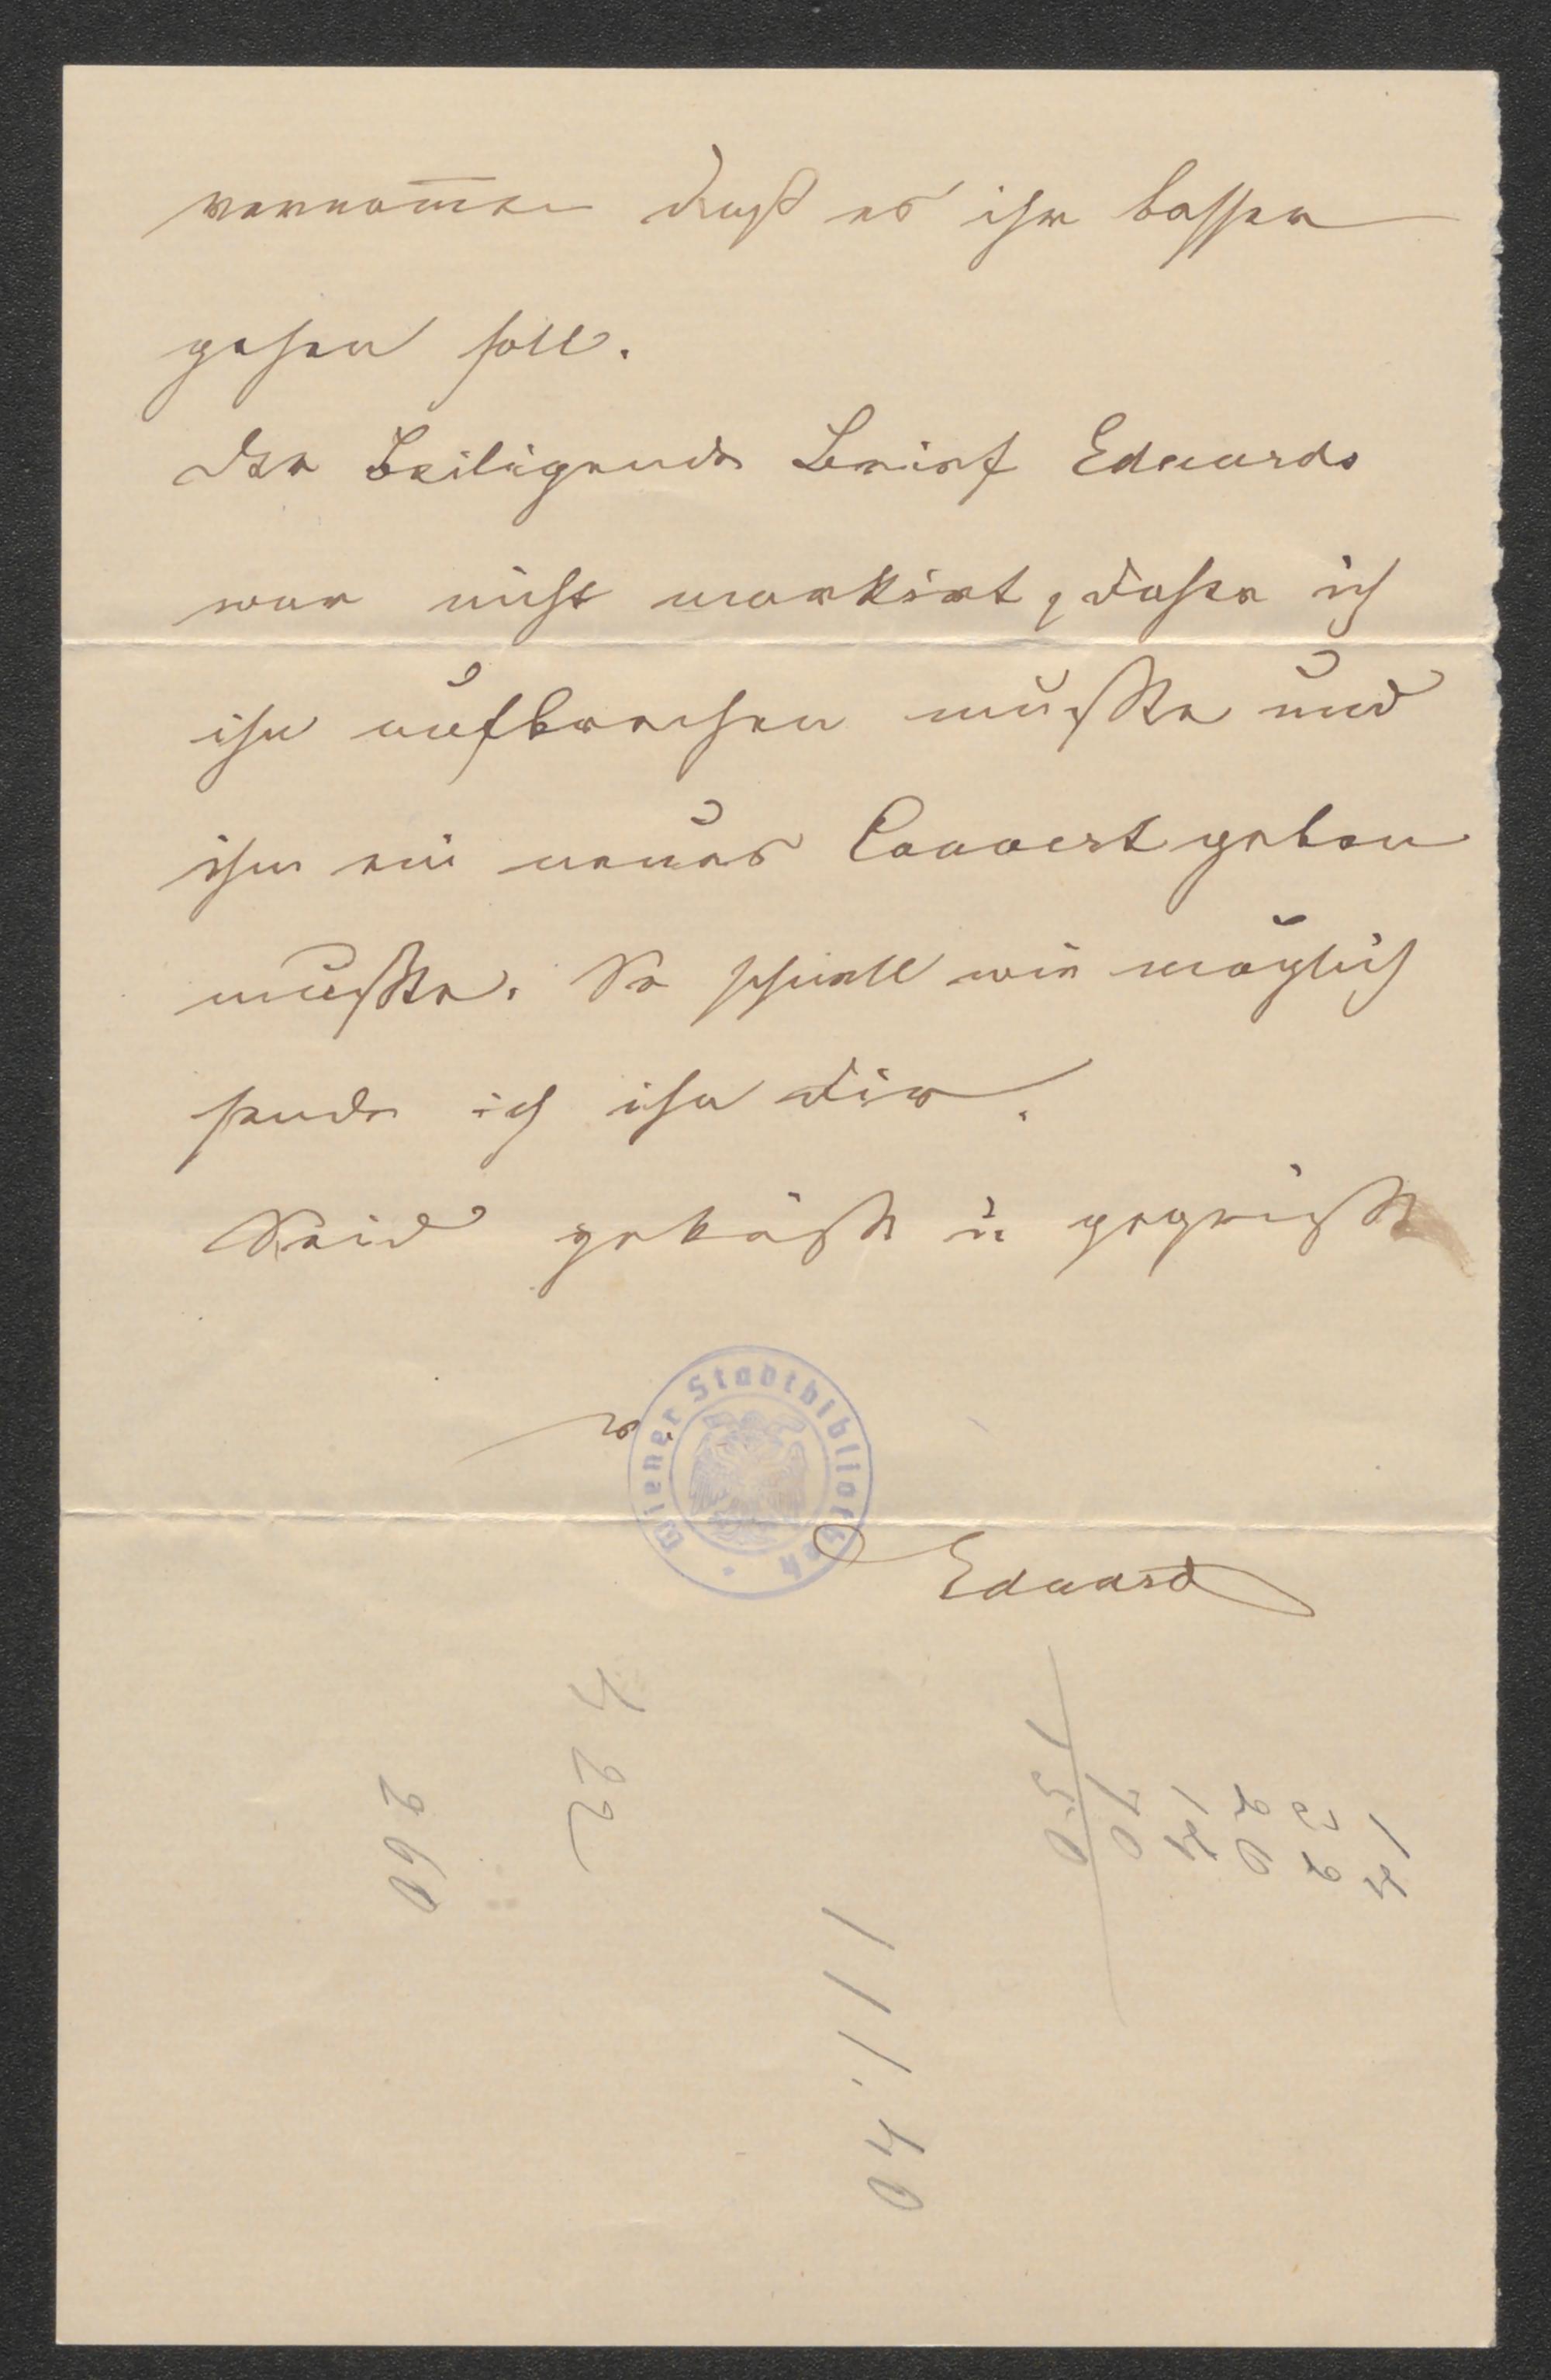 vernom̅en daß es ihr besser
gehen soll.
Der Beiligende Brief Eduards
war nicht markirt, daher ich
ihn aufbrechen mußte und
ihm ein neues Couvert geben
mußte. So schnell wie möglich
sende ich ihn Dir.
Seid geküßt u gegrüßt
Wiener Stadtbibliothek
Eduard
14
32
20
14
70
150
111.40
422
260